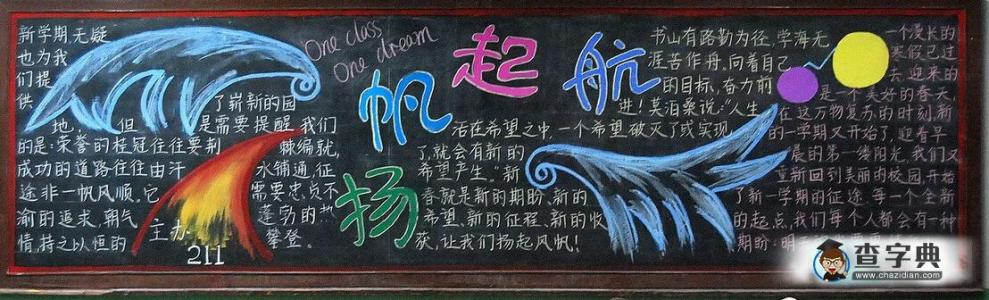 新学期,无疑
也为我
们提
供 了崭新的园
地,但 是需要提醒我们
的是:荣誉的桂冠往往要荆 棘编就,
成功的道路往往由汗 水铺通,征
途非一帆风顺,它 需要忠贞不
渝的追求,朝气 蓬勃的热
情,持之以恒的 攀登。
主办
211
One class
One dream
扬帆起航
书山有路勤为径,学海无
涯苦作舟,向着自己
的目标,奋力前
进!莫泊桑说:"人生
活在希望之中,一个希望破灭了或实现
了,就会有新的
希望产生。"新
春就是新的期盼、新的
希望、新的征程、新的收
获,让我们扬起风帆!
一个漫长的
寒假已过
去,迎来的
是一个美好的春天,
在这万物复苏的时刻,新
的一学期又开始了,迎着早
晨的第一缕阳光,我们又
重新回到美丽的校园,开始
了新一学期的征途,每一个全新
的起点,我们每个人都会有一种
期盼:明
查字典
www.chazidian.com